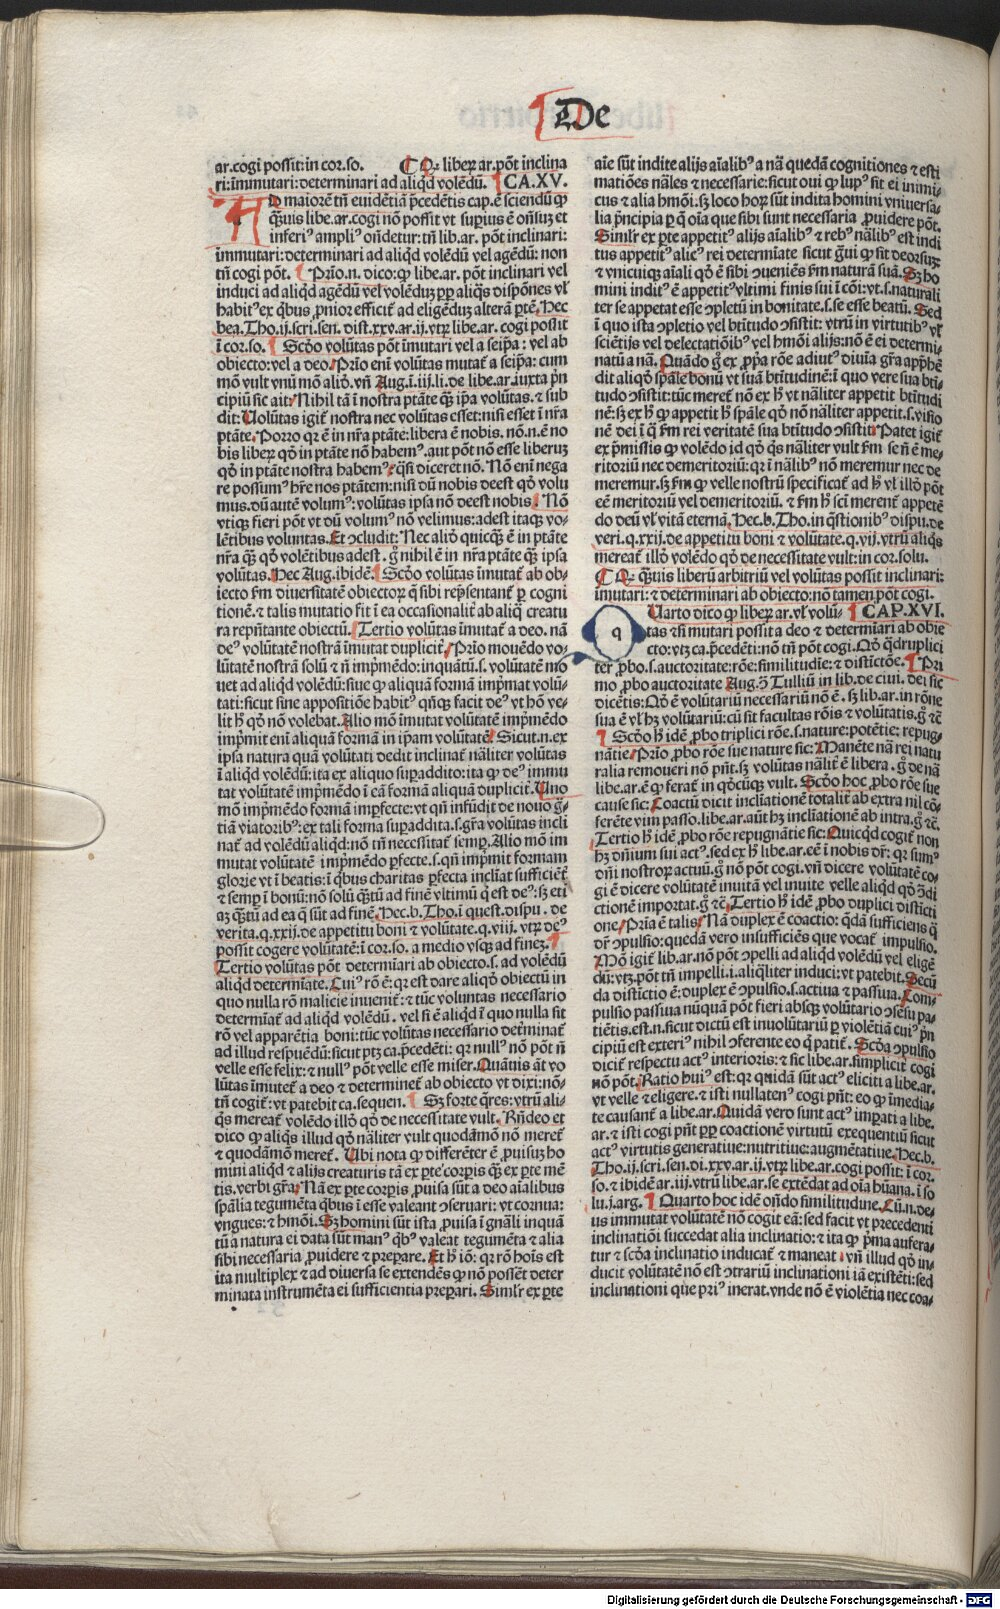 De
ar.cogi possit:in cor.so. ¶ Qꝛ liberꝫ ar.põt inclina
ri:ĩmutari:determinari ad aliqd volẽdũ. ¶ CA.XV.
AD maiorẽ tñ euidẽtiã pcedẽtis cap.ẽ sciendũ ꝙ
qꝫuis libe.ar.cogi nõ possit vt supius ẽ oñsuꝫ et
inferiꝰ ampliꝰ oñdetur:tñ lib.ar. põt inclinari:
ĩmutari:determinari ad aliqd volẽdũ vel agẽdũ: non
tñ cogi põt. ¶ Prĩo.n. dico:ꝙ libe.ar. põt inclinari vel
induci ad aliqd agẽdũ vel volẽduꝫ ppꝉ aliqs dispõnes vl
habitꝰ ex qbus ꝓnior efficit ad eligẽduꝫ alterã ptẽ. Hec
bea.Tho.ij.scri.sen. dist.xxv.ar.ij.vtꝝ libe.ar. cogi possit
ĩ cor.so. ¶ Scõo volũtas põt ĩmutari vel a seipa: vel ab
obiecto:vel a deo. Prĩo eni volũtas mutat a seipa: cum
mõ vult vnũ mõ aliđ. vñ Aug.ĩ.iij.li.de libe.ar.iuxta pñ
cipiũ sic ait: Nihil tã ĩ nostra ptãte qꝫ ipa volũtas. ⁊ sub
dit: Uolũtas igit nostra nec volũtas esset: nisi esset ĩ nrã
ptãte. Porro qꝛ ẽ in nrã ptãte: libera ẽ nobis. nõ.n.ẽ no
bis liberꝫ qđ in ptãte nõ habemꝰ. aut põt nõ esse liberuꝫ
qđ in ptãte nostra habemꝰ. qsi diceret nõ. Nõ eni nega
re possumꝰ hrẽ nos ptãtem: nisi dũ nobis deest qđ volu
mus. dũ autẽ volumꝰ: volũtas ipsa nõ deest nobis. Nõ
vtiqꝫ fieri põt vt dũ volumꝰ nõ velimus: adest itaqꝫ vo-
lẽtibus voluntas. Et ɔcludit: Nec aliđ quicqꝫ ẽ in ptãte
nrã qꝫ qđ volẽtibus adest. g nihil ẽ in nrã ptãte qꝫ ipsa
volũtas. Hec Aug.ibidẽ. ¶ Scõo volũtas ĩmutat ab ob-
iecto fm diuersitatẽ obiectoꝝ q sibi repsentant p cogni
tionẽ. ⁊ talis mutatio fit ĩ ea occasionalit ab aliq creatu
ra repñtante obiectũ. Tertio volũtas ĩmutat a deo. nã
deꝰ voluntatẽ nostrã ĩmutat duplicit. Prĩo mouẽdo vo-
lũtatẽ nostrã solũ ⁊ ñ impmẽdo: inquãtũ.s. volũtatẽ mo
uet ad aliqd volẽdũ: siue ꝙ aliquã formã impmat volũ-
tati: sicut sine appositiõe habitꝰ qñqꝫ facit deꝰ vt hõ ve-
lit hꝫ qđ nõ volebat. Alio mõ ĩmutat volũtatẽ impmẽdo
impmit eni aliquã formã in ipam volũtatẽ. Sicut.n.ex
ipsa natura quã volũtati dedit inclinat nãliter volũtas
ĩ aliqd volẽdũ: ita ex aliquo supaddito: ita ꝙ deꝰ immu
tat volũtatẽ impmẽdo ĩ eã formã aliquã duplicit. Uno
mõ impmẽdo formã impfecte: vt qñ infũdit de nouo g-
tiã viatoribꝰ: ex tali forma supaddita.s.grã volũtas incli
nat ad volẽdũ aliqd: nõ tñ necessitat semp. Alio mõ im
mutat volũtatẽ impmẽdo pfecte.s.qñ impmit formam
glorie vt ĩ beatis: ĩ qbus charitas pfecta inclĩat sufficiẽt
⁊ semp ĩ bonũ: nõ solũ qꝫtũ ad finẽ vltimũ q est deꝰ: sꝫ eti
aꝫ qꝫtũ ad ea q sũt ad finẽ. Hec.b.Tho.ĩ quest.dispu. de
verita.q.xxij.de appetitu boni ⁊ volũtate.q.viij. vtꝝ deꝰ
possit cogere volũtatẽ: ĩ cor.so. a medio vsqꝫ ad fineꝫ. ¶
Tertio volũtas põt determĩari ab obiecto.s. ad volẽdũ
aliqd determĩate. Cuiꝰ rõ ẽ: qꝛ est dare aliqđ obiectũ in
quo nulla rõ malicie inuenit: ⁊ tũc voluntas necessario
determĩat ad aliqd volẽdũ. vel si ẽ aliqd ĩ quo nulla sit
rõ vel apparẽtia boni: tũc volũtas necessario determinat
ad illud respuẽdũ: sicut ptꝫ ca.pcedẽti: qꝛ nullꝰ nõ põt ñ
velle esse felix: ⁊ nullꝰ põt velle esse miser. Quãuis aũt vo
lũtas ĩmutet a deo ⁊ determinet ab obiecto vt dixi: nõ-
tñ cogit: vt patebit ca.sequen. ¶ Sꝫ forte qres: vtrũ ali-
qs mereat volẽdo illđ qđ de necessitate vult. Rñdeo et
dico ꝙ aliqs illud qđ nãliter vult quodãmõ nõ meret
⁊ quodãmõ meret. Ubi nota ꝙ differẽter ẽ ꝓuisuꝫ ho
mini aliqd ⁊ alijs creaturis tã ex pte corpis qꝫ ex pte mẽ
tis. verbi grã. Nã ex pte corpis ꝓuisa sũt a deo aĩalibus
spãlia tegumẽta qbus ĩ esse valeant ɔseruari: vt cornua:
vngues: ⁊ hmõi. Sꝫ homini sũt ista ꝓuisa ĩ gnãli inquã
tũ a natura ei data sũt manꝰ qbꝰ valeat tegumẽta ⁊ alia
sibi necessaria ꝓuidere ⁊ preparare. Et h iõ: qꝛ rõ hoĩs est
ita multiplex ⁊ ad diuersa se extendẽs ꝙ nõ possẽt deter
minata instrumẽta ei sufficientia preparari. Similr ex pte
aĩe sũt indite alijs aĩalibꝰ a nã quedã cognitiones ⁊ esti
matiões nãles ⁊ necessarie: sicut oui ꝙ lupꝰ sit ei inimi-
cus ⁊ alia hmõi. sꝫ loco hoꝝ sũt indita homini vniuersa-
lia pncipia p q oĩa que sibi sunt necessaria ꝓuidere põt.
Similr ex pte appetitꝰ alijs aĩalibꝰ ⁊ rebꝰ nãlibꝰ est indi
tus appetitꝰ alicꝰ rei determĩate sicut gui ꝙ sit deorsuꝫ
⁊ vnicuiqꝫ aĩali qđ ẽ sibi ɔueniẽs fm naturã suã. Sꝫ ho
mini inditꝰ ẽ appetitꝰ vltimi finis sui ĩ cõi: vt.s.naturali
ter se appetat esse ɔpletũ in bonitate.s.se esse beatũ. Sed
ĩ quo ista ɔpletio vel btitudo ɔsistit: vtrũ in virtutibꝰ vl
sciẽtijs vel delectatiõibꝰ vel hmõi alijs: nõ ẽ ei determi-
natũ a nã. Quãdo g ex ppa rõe adiutꝰ diuĩa grã apphẽ
dit aliqđ spãle bonũ vt suã btitudinẽ: ĩ quo vere sua bti-
tudo ɔsistit: tũc meret nõ ex h vt nãliter appetit btitudi
nẽ: sꝫ ex h ꝙ appetit h spãle qđ nõ nãliter appetit.s.visio
nẽ dei ĩ q fm rei veritatẽ sua btitudo ɔsistit. Patet igit
ex pmissis ꝙ volẽdo id qđ qs nãliter vult fm se ñ ẽ me-
ritoriũ nec demeritoriũ: qꝛ ĩ nãlibꝰ nõ meremur nec de
meremur. sꝫ fm ꝙ velle nostrũ specificat ad h vl illđ põt
eẽ meritoriũ vel demeritoriũ. ⁊ fm h sci merent appetẽ
do deũ vl vitã eternã. Hec.b.Tho.in qstionibꝰ dispu.de
veri.q.xxij.de appetitu boni ⁊ volũtate.q.vij.vtrũ aliqs
mereat illđ volẽdo qđ de necessitate vult: in cor.solu.
¶ Qꝛ qꝫuis liberũ arbitriũ vel volũtas possit inclinari:
ĩmutari: ⁊ determinari ab obiecto: nõ tamen põt cogi.
QUarto dico ꝙ liberꝫ ar.vl volũ- ¶ CAP.XVI.
tas vsi mutari possit a deo ⁊ determĩari ab obie
cto: vtꝫ ca.pcedẽti: nõ tñ põt cogi. Qđ qdruplici
ter ꝓbo.s.auctoritate: rõe: similitudĩe: ⁊ distictõe. ¶ Pri
mo ꝓbo auctoritate Aug.ɔ Tulliũ in lib.de ciui. dei sic
dicẽtis: Qđ ẽ voluntariũ necessariũ nõ ẽ. sꝫ lib.ar.in rõne
sua ẽ vl hꝫ volũtariũ: cũ sit facultas rõis ⁊ volũtatis. g ⁊c̃
¶ Scõo h idẽ ꝓbo triplici rõe.s.nature: potẽtie: repug-
nãtie. Prĩo ꝓbo rõe sue nature sic: Manẽte nã rei natu
ralia remoueri nõ pñt. sꝫ volũtas nãlit ẽ libera. g de nã
libe.ar.ẽ ꝙ ferat in qđcũqꝫ vult. Scõo hoc ꝓbo rõe sue
cause sic: Coactũ dicit inclĩationẽ totalit ab extra nil cõ-
ferẽte vim passo. libe.ar.aũt hꝫ inclĩationẽ ab intra. g ⁊c̃.
Tertio h idẽ ꝓbo rõe repugnãtie sic: Quicqd cogit non
hꝫ dñium sui actꝰ. sed ex h libe.ar.eẽ ĩ nobis dr: qꝛ sumꝰ
dñi nostroꝝ actuũ. g nõ põt cogi. vñ dicere volũtatẽ co-
gi ẽ dicere volũtatẽ inuitã vel inuite velle aliqd qđ ɔdi
ctionẽ importat. g ⁊c̃. Tertio h idẽ ꝓbo duplici distĩcti
one. Prĩa ẽ talis. Nã duplex ẽ coactio: qdã sufficiens q
dr ɔpulsio: quedã vero insufficiẽs que vocat impulsio.
Mõ igit lib.ar.nõ põt ɔpelli ad aliqd volẽdũ vel eligẽ
dũ: vtꝫ. põt tñ impelli.i.aliqliter induci: vt patebit. Secũ
da distĩctio ẽ: duplex ẽ ɔpulsio.s.actiua ⁊ passiua. Com-
pulsio passiua nũquã põt fieri absqꝫ volũtario ɔsẽsu pa-
tiẽtis. est.n.sicut dictũ est inuolũtariũ p violẽtiã cuiꝰ pñ
cipiũ est exteriꝰ nihil ɔferente eo q patit. Scõa ɔpulsio
dicit respectu actꝰ interioris: ⁊ sic libe.ar.simplicit cogi
nõ põt. Ratio huiꝰ est: qꝛ quidã sũt actꝰ eliciti a libe.ar.
vt velle ⁊ eligere. ⁊ isti nullatenꝰ cogi pñt: eo ꝙ ĩmedia-
te causant a libe.ar. Quidã vero sunt actꝰ impati a libe.
ar. ⁊ isti cogi pñt ppꝉ coactionẽ virtutũ exequentiũ sicut
actꝰ virtutis generatiue: nutritiue: augmẽtatiue. Hec.b.
Tho.ij.scri.sen.di.xxv.ar.ij.vtꝝ libe.ar.cogi possit: ĩ cor.
so. ⁊ ibidẽ ar.iij.vtrũ libe.ar.se extẽdat ad oĩa hũana. ĩ so
lu.j.arg. ¶ Quarto hoc idẽ oñdo similitudine. Cũ.n.de-
us immutat volũtatẽ nõ cogit eã: sed facit vt precedenti
inclinatiõi succedat alia inclinatio: ⁊ ita ꝙ pma aufera-
tur ⁊ scõa inclinatio inducat ⁊ maneat. vñ illud qđ in-
ducit volũtatẽ nõ est ɔtrariũ inclinationi iã existẽti: sed
inclinationi que priꝰ inerat. vnde nõ ẽ violẽtia nec coa-
Digitalisierung gefördert durch die Deutsche Forschungsgemeinschaft - DFG